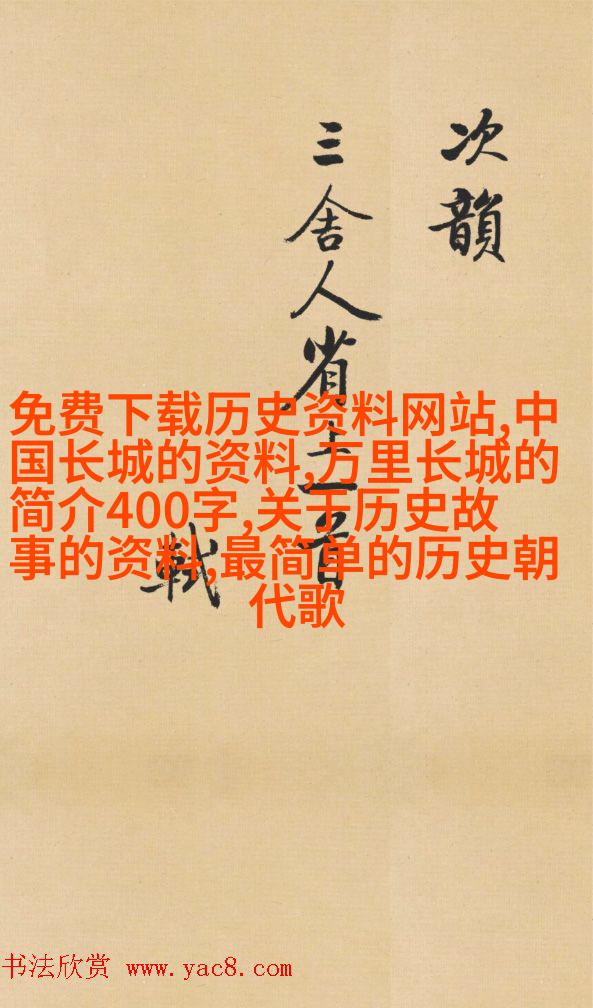 次韻
三舍人省上一首
軾
免费下载历史资料网站,中
国长城的资料,万里长城的
简介400字,关于历史故
事的资料,最简单的历史朝
代歌
书法欣赏 www.yac8.com